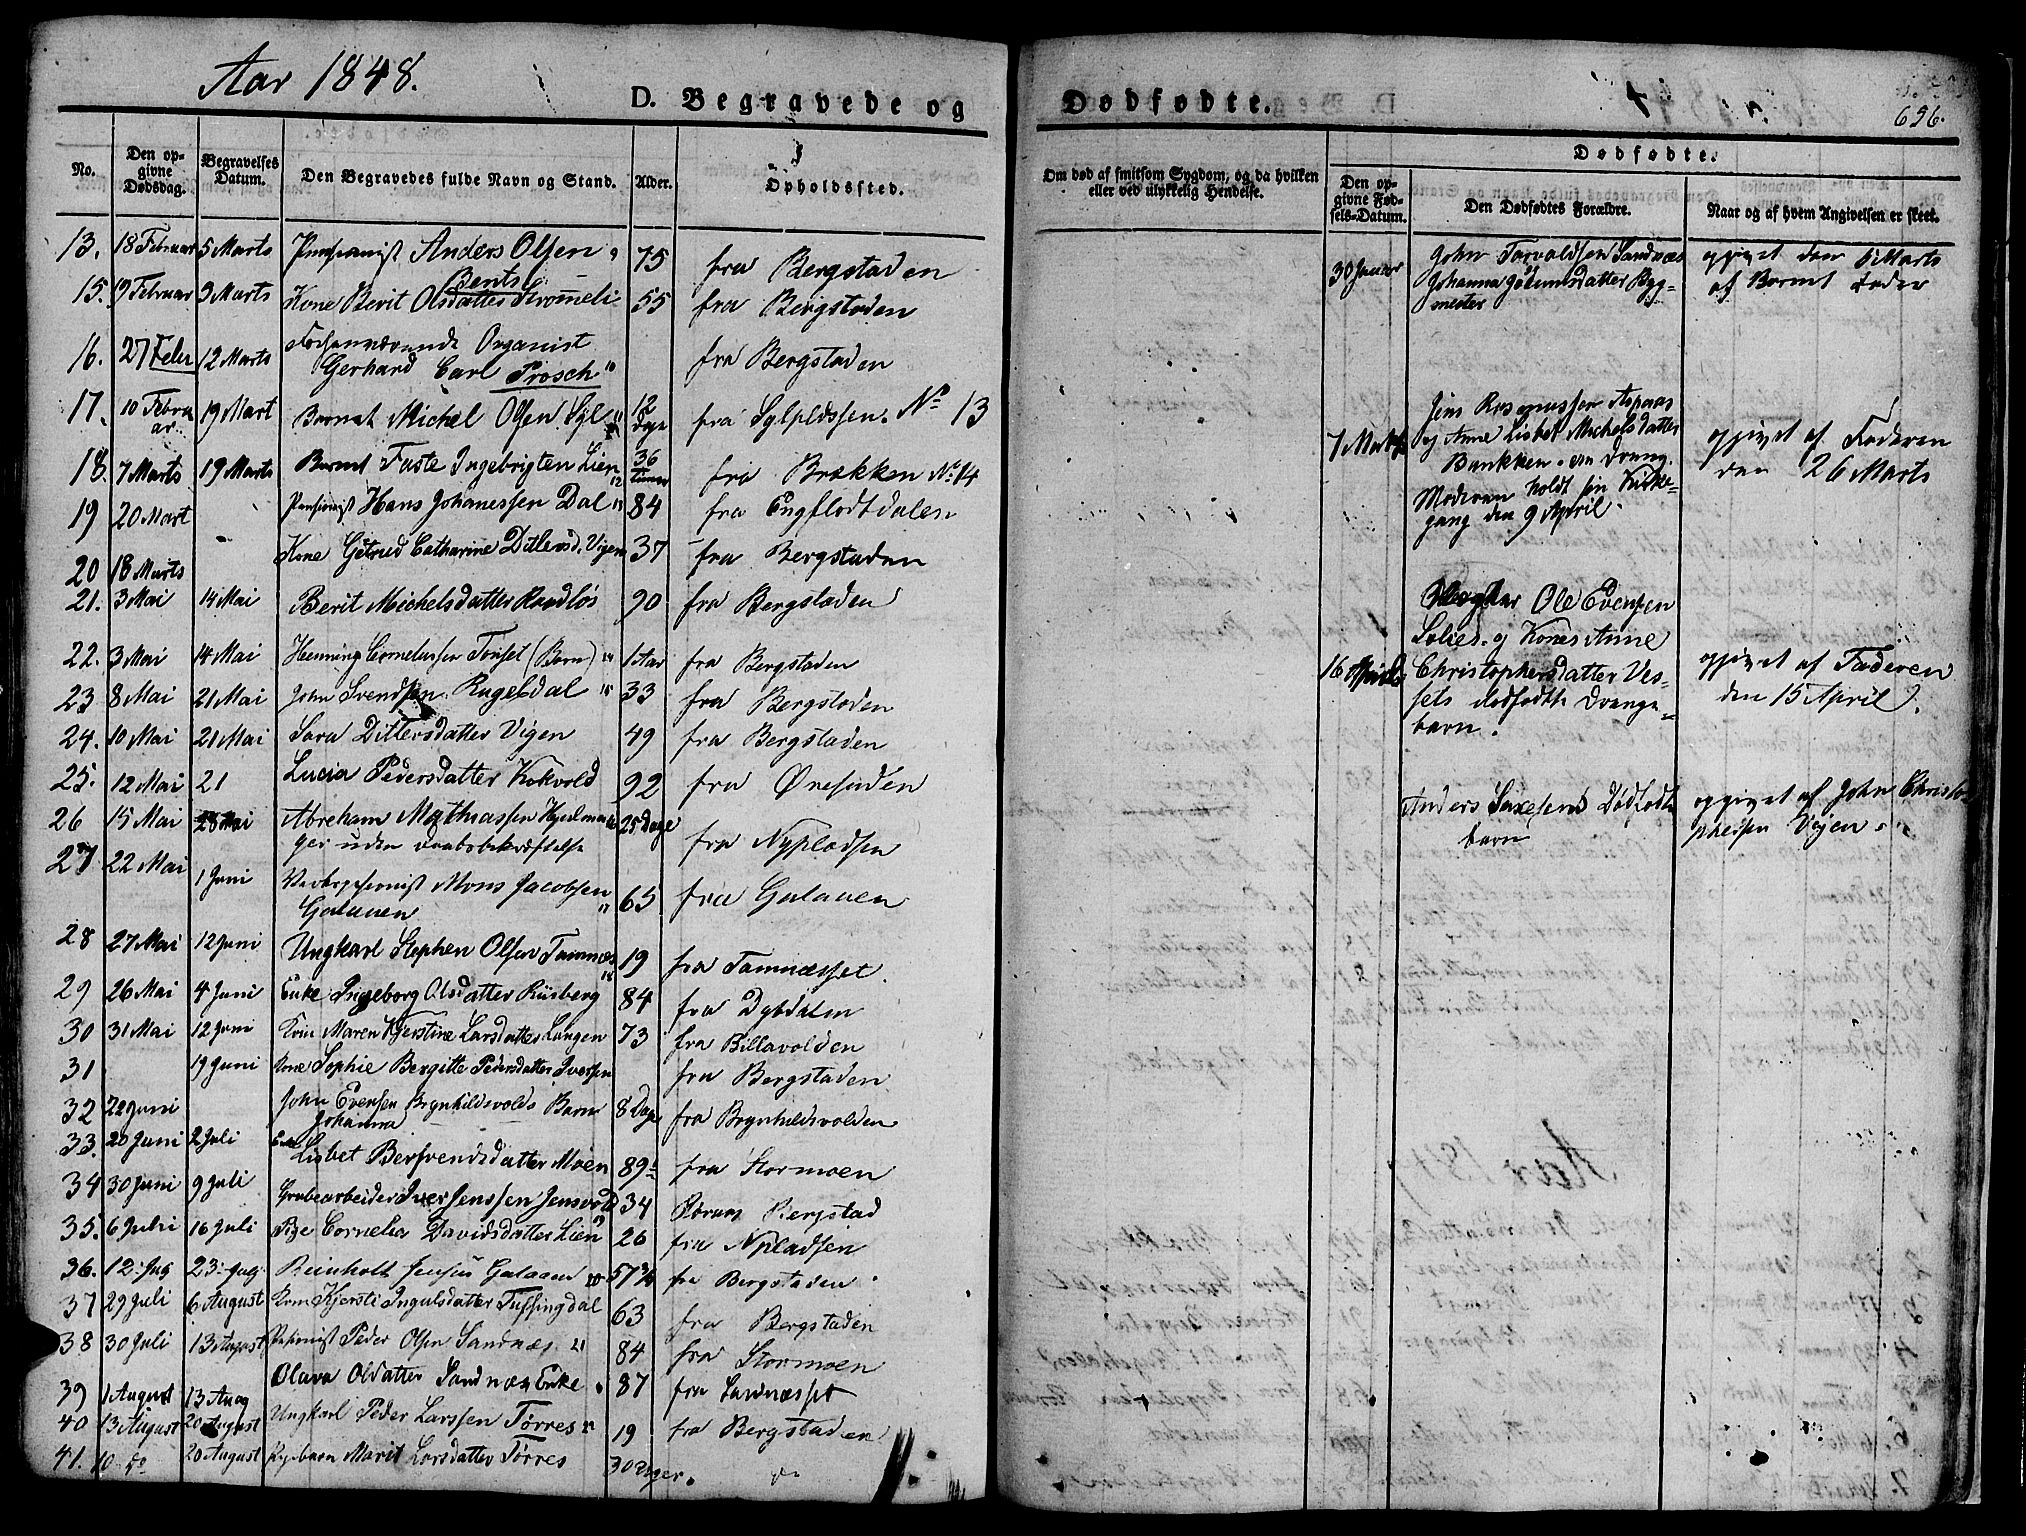 Aar 1848.
D. Begravede og
No.
Den opgivne Dødsdag.
Begravelses Datum.
Den Begravedes fulde Navn og Stand.
Alder.
Opholdssted.
13. 18 Februar 5 Marts Pensionist Anders Olsen 75 fra Bergstaden
Bents
15. 19 Februar 9 Marts Kone Berit Olsdatter Strømeli 55 fra Bergstaden
16. 27 Febr 12 Marts Forhenværende Organist
Gerhard Carl Prosch fra Bergstaden
17. 10 Februar 19 Mart Barnet Michel Olsen Syl 12 Dage fra Sylpladssen. No 13
18. 7 Marts 19 Marts Barnet Faste Ingebrigten Lien 36 Timer fra Brækken No 14
19 20 Mart Pensionist Hans Johanessen Dal 84 fra
20 18 Marts Kone Getrud Catharine Ditlevsd. Vigen 37 fra Bergstaden
21. 3 Mai 14 Mai Berit Michelsdatter Raadløs 90 fra Bergstaden
22. 3 Mai 14 Mai Henning Cornelussen Tønset (Barn) 1 Aar fra Bergstaden
23 8 Mai 21 Mai John Svendsen Rugeldal 33 fra Bergstaden
24. 10 Mai 21 Mai Sara Ditlevsdatter Vigen 49 fra Bergstaden
25. 12 Mai 21 Lucia Pedersdatter Kokvold 92 fra
26 15 Mai 28 Mai Abreham Mathiassen 25 Dage
ger uden daabsbekræftelse fra Nypladsen
27 22 Mai 1 Juni Mons Jacobsen
Galauen 65 fra Galauen
28 27 Mai 12 Juni Ungkarl Stephen Olsen Tamnæs 19 fra Tamnæsset.
29 26 Mai 4 Juni Enke Ingeborg Olsdatter Riisberg 84 fra Dybdalen
30 31 Mai 12 Juni Kone Maren Kjerstine Larsdatter Langen 73 fra Billavolden
31 19 Juni Kone Sophie Bergitte Pedersdatter Iversen fra Bergstaden
32 22 Juni John Evensen Brynhildsvolds Barn
Johanna 8 Dage fra Brynhildsvolden
33. 20 Juni 2 Juli Enke Lisbet Bersvendsdatter Moen 89 fra Stormoen
34 30 Juni 9 Juli Grubearbeider Iver Jenssen Jensvold 34 Røraas Bergstad
35. 6 Juli 16 Juli Pige Cornelia Davidsdatter Lien 26 fra Nypladsen
36. 12 Jul 23 July Reinholt Jensen Galaaen 57 3/4 fra Bergstaden
37 29 Juli 6 August Kone Kjersti Ingulsdatter Tuffingdal 63 fra Bergstaden
38 30 Juli 13 August Pensionist Peder Olsen Sandnæs 84 fra Stormoen
39 1 August 13 Aug Olava Olsdatter Sandnæs Enke 87 fra Sandnæsset
40 13 August 20 August Ungkarl Peder Larssen Tørres 19 fra Bergstaden
41. 10 do 20 August Pigebarn Marit Larsdatter Tørres 30 Uger. do
Dødfødte.
656.
Om død af smitsom Sygdom, og da hvilken
eller ved ulykkelig Hendelse.
Dødfødte.
Den opgivne Fødsels-Datum.
Den Dødfødtes Forældre.
Naar og af hvem Angivelsen er skeet.
30 Januar John Torvaldsen Sandnæs
Johanna
mester
opgivet den Marts
af Barnets Fader
7 Marts Jens Rasmussen Aspaas
og Anne Lisbet Michelsdatter
Bankken. en Dreng.
Moderen holdt sin Kirke-
gang den 9 April.
opgivet af Faderen
den 26 Marts
Ole Evensen
og Kones Anne
Christophersdatter Ves-
sets dødfødte Drenge-
barn.
16
opgivet af Faderen
den 15 April.
Anders Saxesens Dødfødte
barn
opgivet af John Christo-
phersen Vejen.